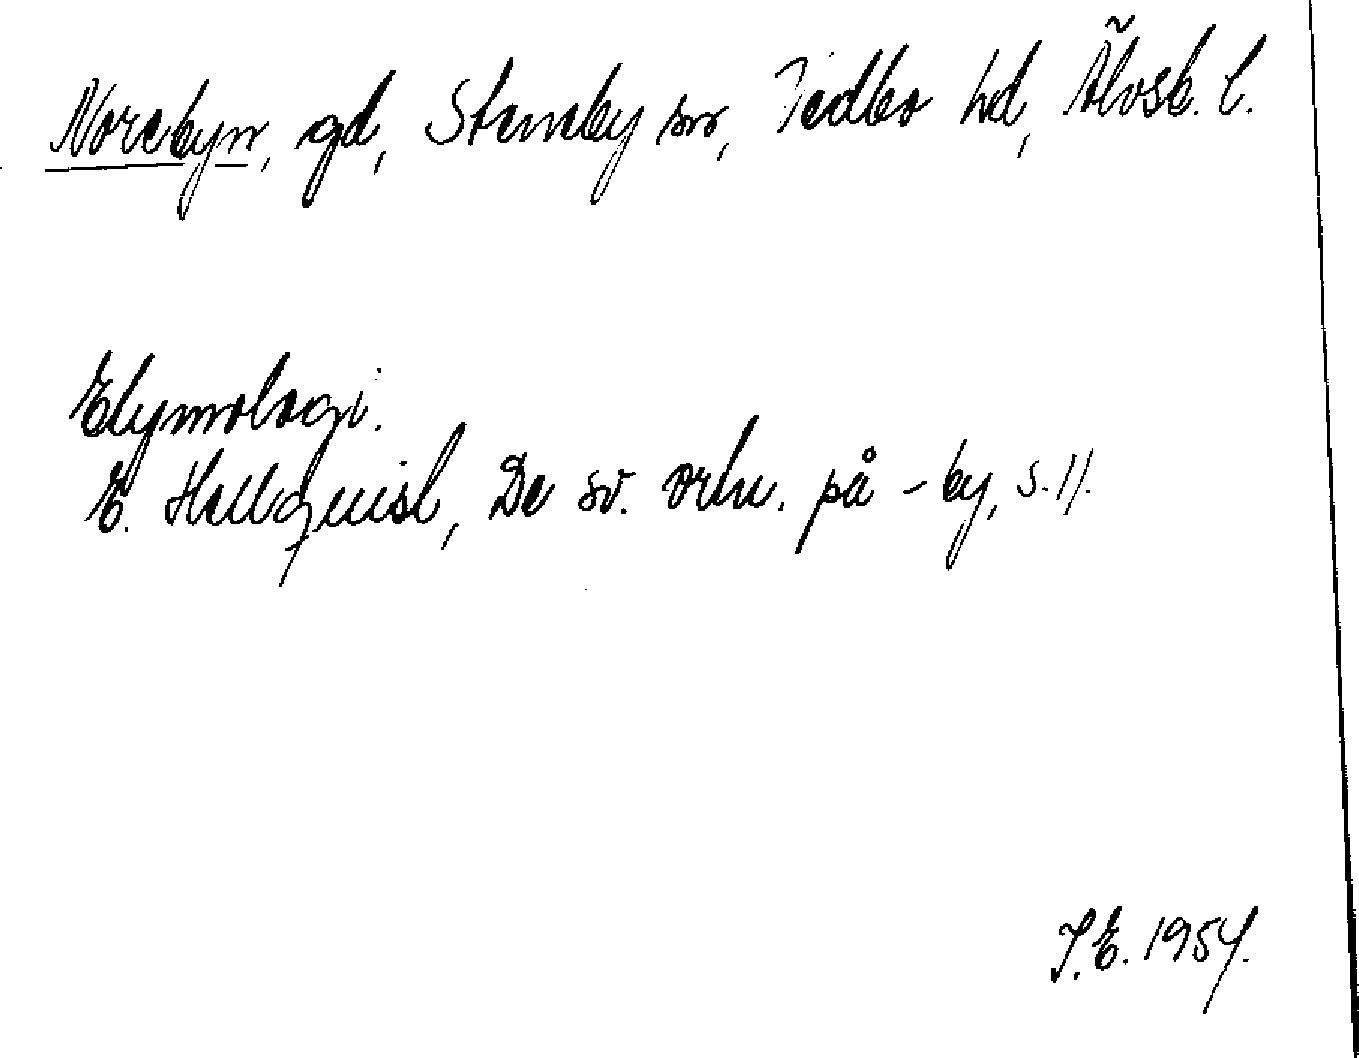 Norebyn, gd, Steneby sn, Vedbo hd, Älvsb. l.
Etymologi.
E. Hellquist, De sv. ortn. på -by, s. 11.
I.E. 1954.